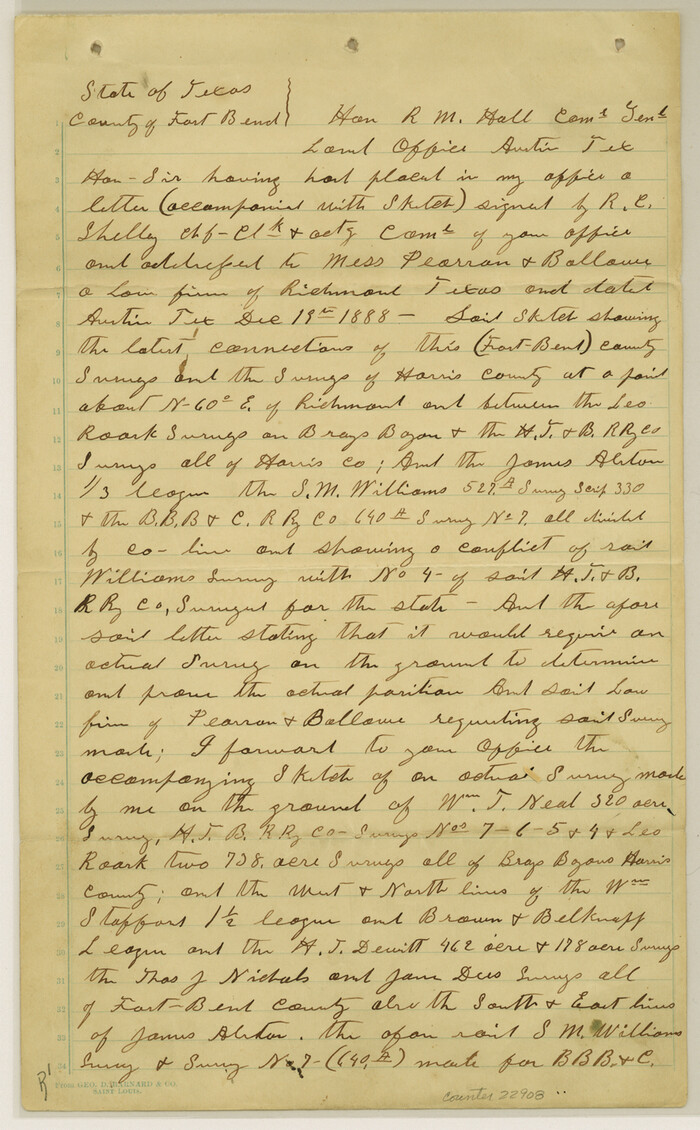 State of Texas
County of Fort Bend } Hon R M. Hall Comr Genl
Land Office Austin Tex
Hon-Sir having had placed in my office a
letter (accompanied with Sketch) signed by R. C.
Shelly chf-Clk & actg Comr of your office
and addressed to Mess Pearson & Ballowe
a Law firm of Richmond Texas and dated
Austin Tex Dec 19th 1888 - Said Sketch showing
the latest connections of this (Fort-Bend) county
Surveys and the Surveys of Harris County at a point
about N-60° E. of Richmond and between the Leo
Roark Surveys on Brays Bayou & the H.T. & B. RRy Co
Surveys all of Harris Co; And the James Alston
1/3 league the S.M. Williams 527 A Survey Scrip 330
& the B.B.B & C. R Ry Co 640 A Survey No 7, all divided
by co-line and showing a conflict of said
Williams Survey with No 4- of said H.T. & B.
R Ry Co, Surveyed for the state - And the afore
said letter stating that it would require an
actual Survey on the ground to determine
and prove the actual position And said Law
firm of Pearson & Ballowe requesting said Survey
made; I forward to your Office the
accompanying Sketch of an actual Survey made
by me on the ground of Wm. T. Neal 320 acre
Survey, H.T. B. R Ry Co- Surveys Nos 7-6-5 & 4 & Leo
Roark two 738. acre Surveys all of Brays Bayou Harris
County; and the West & North lines of the Wm
Stafford 1½ league and Brown & Belknapp
League and the H. T. Dewitt 462 acre & 178 acre Surveys
the Thos J Nichols and Jane Dees Surveys all
of Fort-Bend County also the South & East lines
of James Alston. the afore said S M. Williams
Survey & Survey No 7- (640 A) made for BBB. & C.
1
2
3
4
5
6
7
8
9
10
11
12
13
14
15
16
17
18
19
20
21
22
23
24
25
26
27
28
29
30
31
32
33
34
GEO. D. BARNARD & CO.
SAINT LOUIS.
counter 22908